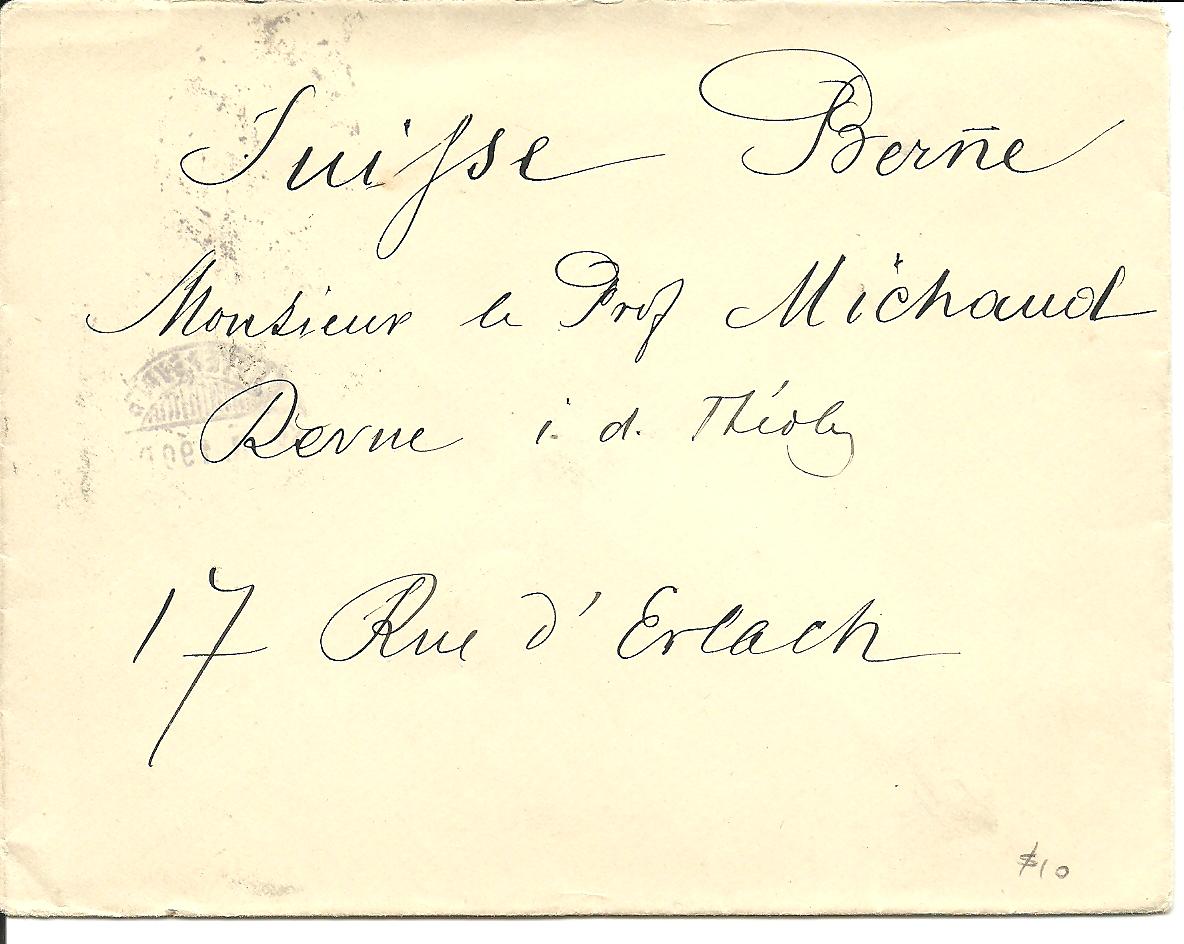 Suisse Berne
Monsieur le Prof Michaud
Revue i. d. Théolog
17 Rue d'Erlach
$10